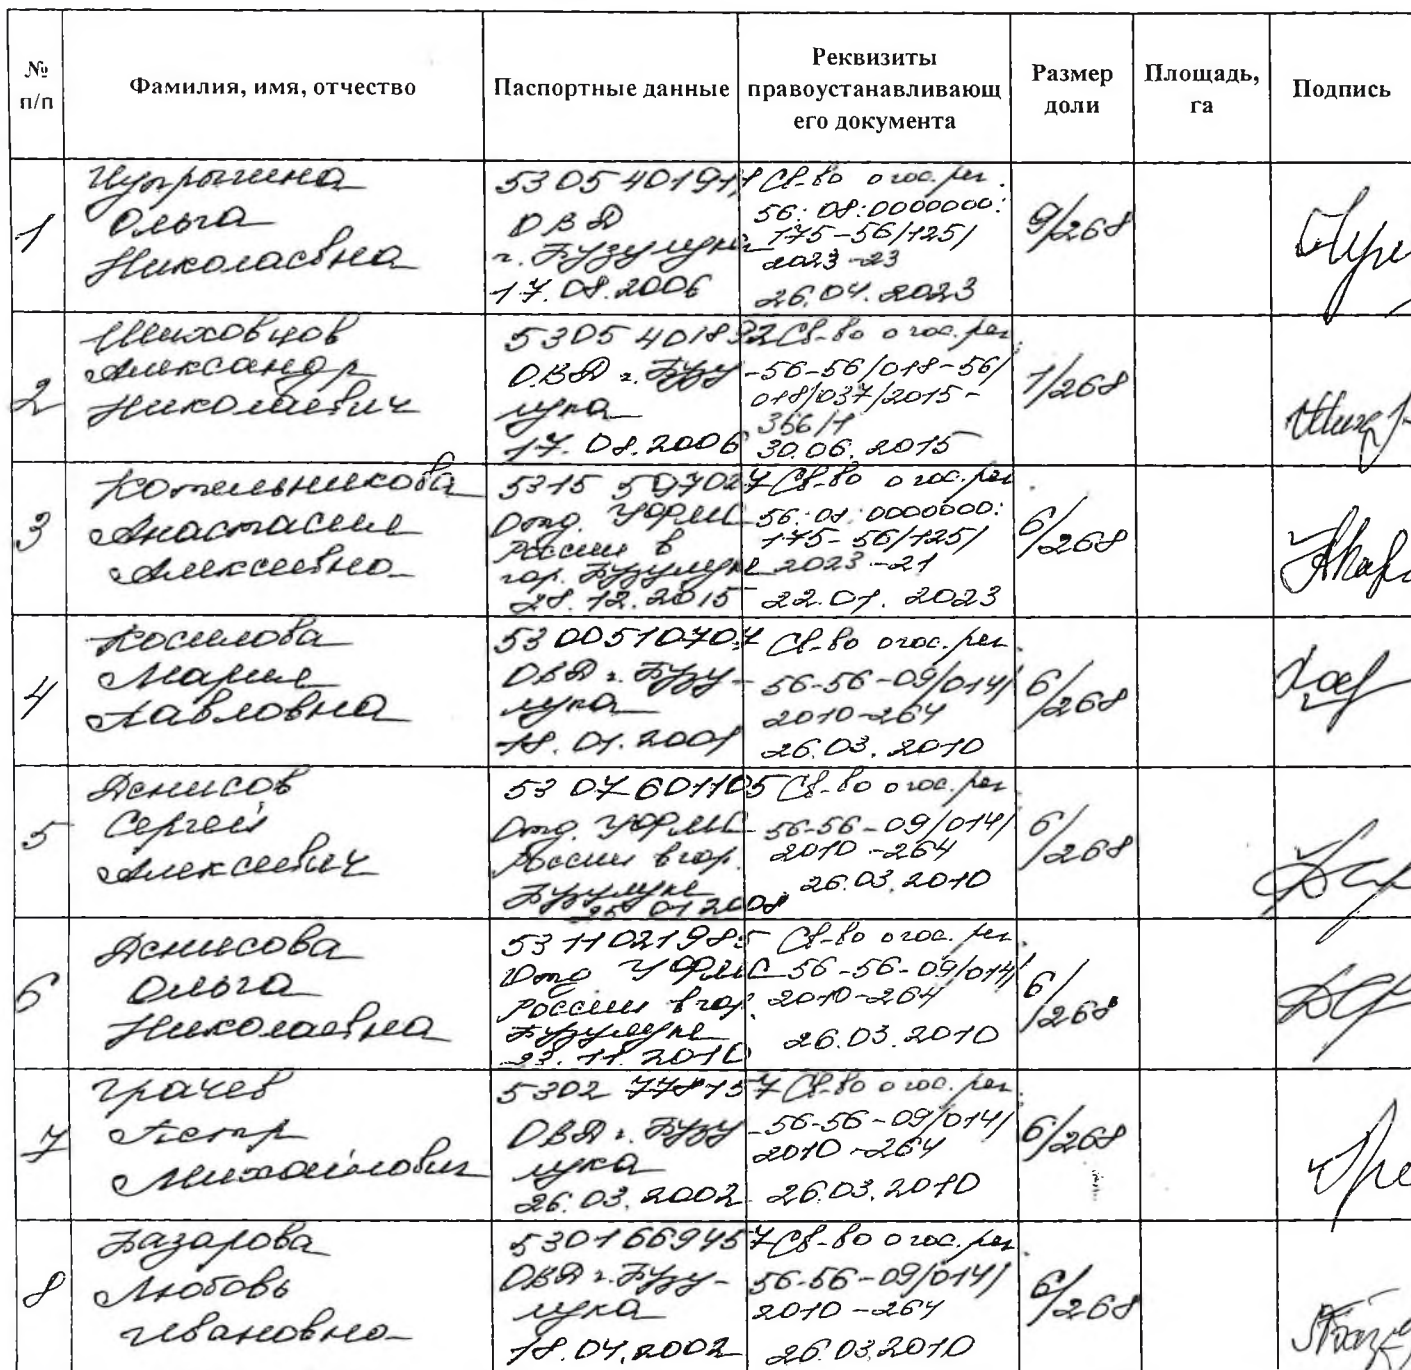 № п/п
Фамилия, имя, отчество
Паспортные данные
Реквизиты
правоустанавливающ
его документа
Размер
доли
Площадь,
га
Подпись
1
Ольга
Николаевна
5305 401911
ОВД
г. Бузулука
17.08.2006
Св-во о гос. рег.
56:08:0000000:
175-56/125/
2023-23
26.04.2023
9/268
2
Шиховцов
Александр
Николаевич
5305 401892
ОВД г. Бузу
лука
17.08.2006
Св-во о гос. рег.
-56-56/018-56/
018/037/2015-
366/1
30.06.2015
1/268
3
Котельникова
Анастасия
Алексеевна
5315 597027
Отд. УФМС
России в
гор. Бузулуке
28.12.2015
Св-во о гос. рег.
56:08:0000000:
175-56/125/
2023-21
2023
6/268
4
Косилова
Мария
Павловна
5300510707
ОВД г. Бузу-
лука
18.01.2001
Св-во о гос. рег.
56-56-09/014/
2010-264
26.03.2010
6/268
5
Денисов
Сергей
Алексеевич
5307 601105
Отд. УФМС
России в гор.
Бузулуке
25.01.2008
Св-во о гос. рег.
-56-56-09/014/
2010-264
26.03.2010
6/268
6
Денисова
Ольга
Николаевна
5311021985
Отд УФМС
России в гор.
Бузулуке
23.11.2010
Св-во о гос. рег.
56-56-09/014/
2010-264
26.03.2010
6/268
7
Грачев
Петр
Михайлович
5302 778157
ОВД г. Бузу
лука
26.03.2002
Св-во о гос. рег.
-56-56-09/014/
2010-264
26.03.2010
6/268
8
Базарова
Любовь
Ивановна
5301669457
ОВД г. Бузу-
лука
18.04.2002
Св-во о гос. рег.
56-56-09/014/
2010-264
26.03.2010
6/268